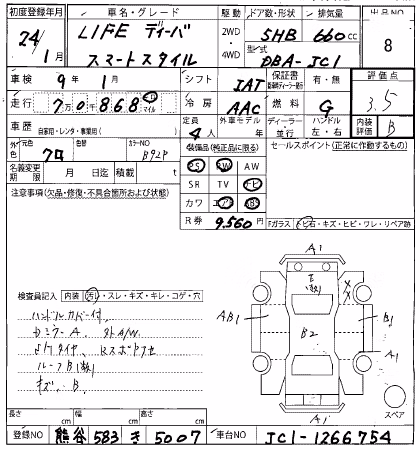 初度登録年月 車名・グレード 駆動 ドア数・形状 排気量 出品NO
24/1月 LIFE ディーバ 2WD・4WD 5HB 660cc 8
スマートスタイル 型式 DBA-JC1
車検 9年1月 シフト IAT 保証書 有・無 評価点
走行 7万0千868 キロ マイル 冷房 AAC 燃料 G 3.5
車歴 自家用・レンタ・事業用( ) 定員 4人 外車モデル 年 ディーラー・並行 ハンドル 左・右 内装評価 B
元色 クロ 色替 カラーNO B92P 装備品(純正品に限る) セールスポイント(正常に作動するもの)
名義変更期限 月 日迄 積載 t PS PW AW
注意事項(欠品・修復・不具合箇所および状態) SR TV ナビ
カワ エアB ABS
R券 9,560円 Fガラス トビ石・キズ・ヒビ・ワレ・リペア跡
A1
検査員記入 内装 汚レ・スレ・キズ・キレ・コゲ・穴
ハンドルカバー付
AB1 B2 B1
A1
ルーフB1(数)
キズ、B
A1 スペア
長さ cm 幅 cm 高さ cm
登録NO 熊谷 583 き 5007 車台NO JC1-1266754